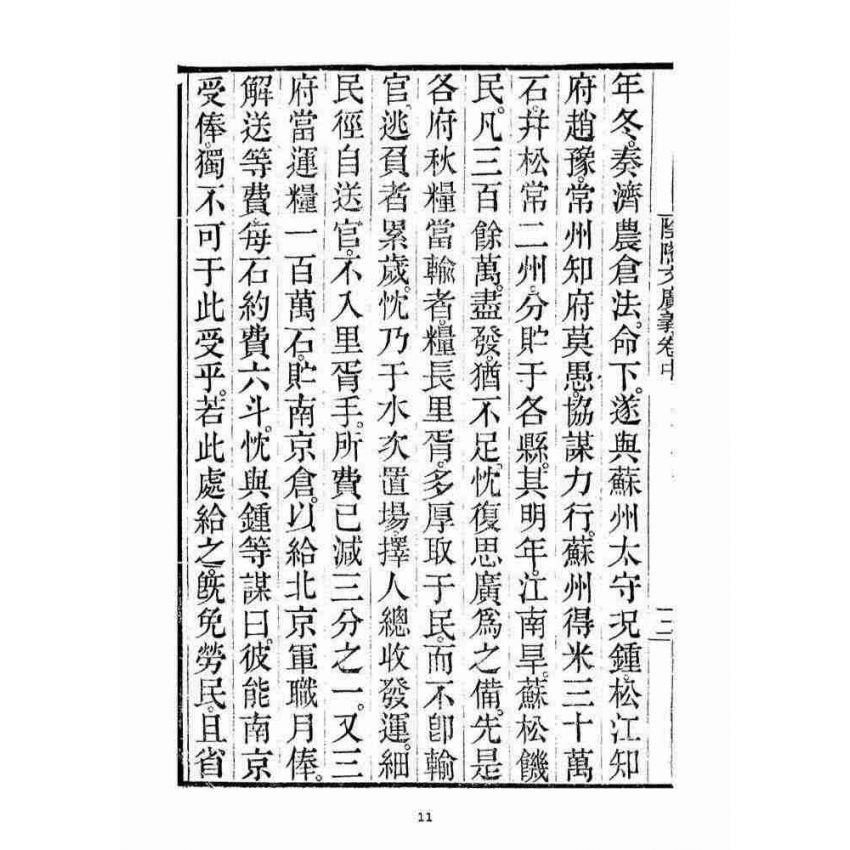 陰隲文廣義卷中
二
年冬。奏濟農倉法。命下。遂與蘇州太守况鍾。松江知
府趙豫。常州知府莫愚。協謀力行。蘇州得米三十萬
石。幷松常二州。分貯于各縣。其明年。江南旱。蘇松饑
民。凡三百餘萬。盡發。猶不足。忱復思廣爲之備。先是
各府秋糧當輸者。糧長里胥。多厚取于民。而不卽輸
官。逃負者累歲。忱乃于水次置場。擇人總收發運。細
民徑自送官。不入里胥手。所費已減三分之一。又三
府當運糧一百萬石。貯南京倉。以給北京軍職月俸。
解送等費。每石約費六斗。忱與鍾等謀曰。彼能南京
受俸。獨不可于此受乎。若此處給之。旣免勞民。且省
11